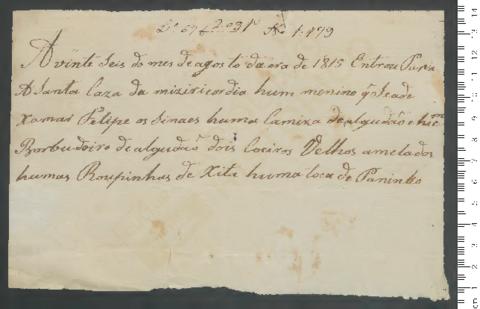 Nº 1.479
A vinte seis do mes de agosto da era de 1815 Entrou Para
A Santa Caza da miziricordia hum menino q̃ se ade
xamar Felipe os sinaes huma Camiza de algudão e hum
de algudão dois Coeiros Velhos amelados
humas Roupinhas de Xita huma toca de Paninho